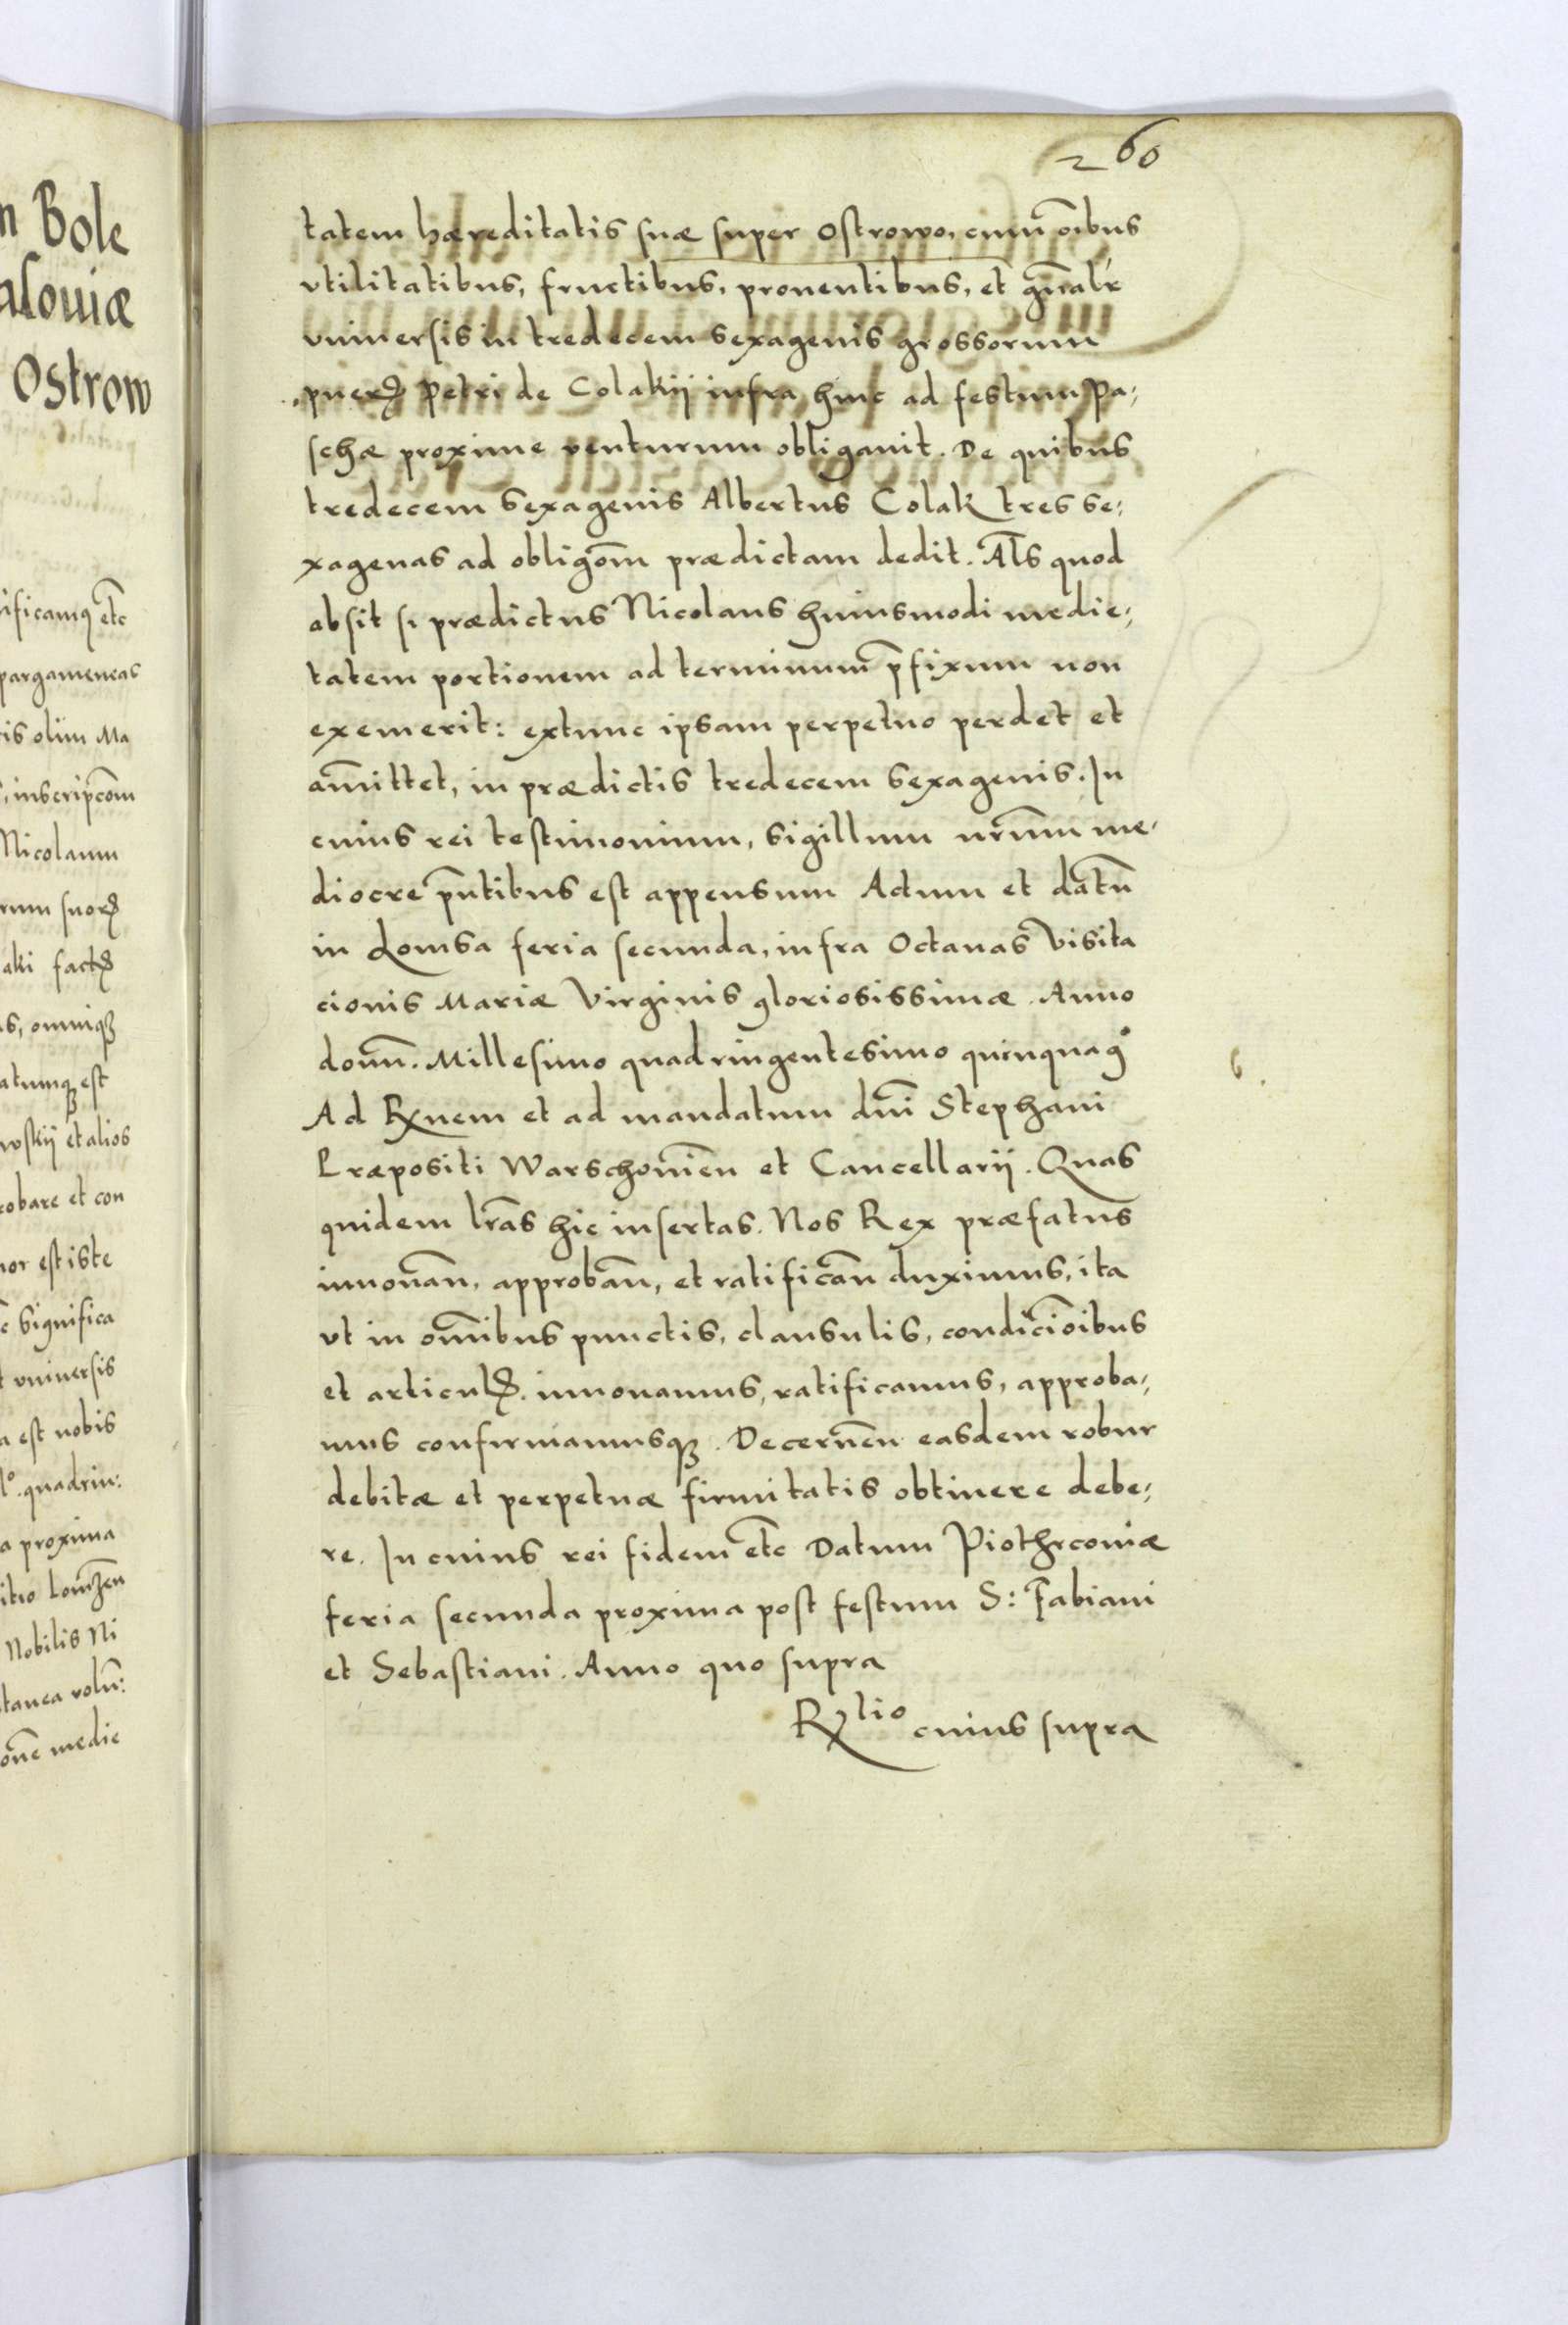 n Bole
asouiæ
Ostrow
ificamꝯ etc̃
pargameneas
is olim Ma
, inscripcõm
Nicolaum
rum suorꝝ
aki factꝝ
s, omniqꝫ
atumqꝫ est
wskii et alios
robare et con
nor est iste
c̃ significa
t vniuersis
a est nobis
lᵒ. quadrin:
a proxima
itio Lomz̃en
Nobilis Ni
tanea volũ:
onẽ medie
260
tatem hæreditatis suæ super Ostrowo, cum oı̃bus
vtilitatibus, fructibus, prouentibus, et gñalr̃
vniuersis in tredecem sexagenis grossorum
puerꝝ Petri de Colakii infra hinc ad festum Pa,
schæ proxime venturum obligauit. De quibus
tredecem sexagenis Albertus Colak tres se,
xagenas ad obligõm prædictam dedit. Al̃s quod
absit si prædictus Nicolaus huiusmodi medie,
tatem portionem ad terminum p̃fixum non
exemerit: extunc ipsam perpetuo perdet et
am̃ittet, in prædictis tredecem sexagenis. In
cuius rei testimonium, sigillum nr̃um me,
diocre pñtibus est appensum Actum et datũ
in Lomsa feria secunda, infra Octauas Visita
cionis Mariæ Virginis gloriosissimæ. Anno
domñ. Millesimo quadringentesimo quinquagᵒ
Ad Rꝛnem et ad mandatum dñi Stephani
Præpositi Warschouieñ et Cancellarii. Quas
quidem lr̃as hic insertas. Nos Rex præfatus
innouañ, approbañ, et ratificañ duximus, ita
vt in om̃ibus punctis, clausulis, condicı̃oibus
et articulꝝ. innouamus, ratificamus, approba,
mus confirmamusqꝫ. Decerneñ easdem robur
debitæ et perpetuæ firmitatis obtinere debe,
re. In cuius rei fidem etc̃ Datum Piothrcouiæ
feria secunda proxima post festum S: Fabiani
et Sebastiani. Anno quo supra
Rꝛlio cuius supra